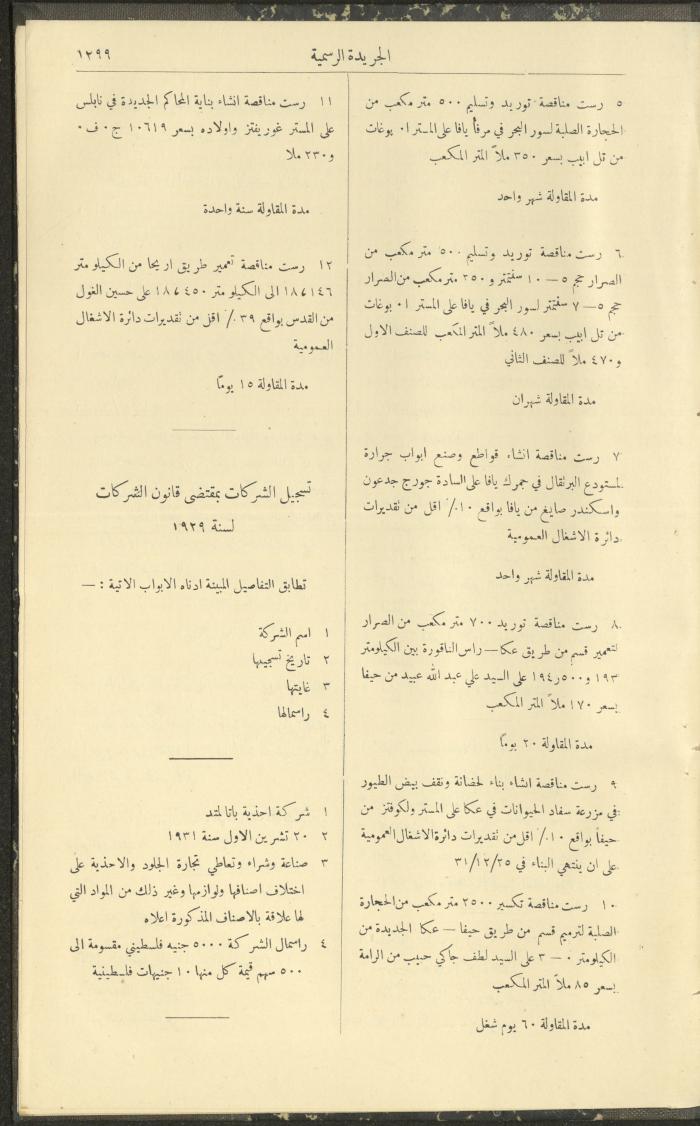 الجريدة الرسمية
١٢٩٩
٥ رست مناقصة توريد وتسليم ٥٠٠ متر مكعب من
الحجارة الصلبة لسور البحر في مرفأ يافا على المستر ا٠ بوغات
من تل ابيب بسعر ٣٥٠ ملاً المتر المكعب
مدة المقاولة شهر واحد
٦ رست مناقصة توريد وتسليم ٥٠٠ متر مكعب من
الصرار حجم ٥ — ١٠ سنتمتر و ٢٥٠ متر مكعب من الصرار
حجم ٥ — ٧ سنتمتر لسور البحر في يافا على المستر ا٠ بوغات
من تل ابيب بسعر ٤٨٠ ملاً المتر المكعب للصنف الاول
و ٤٧٠ ملاً للصنف الثاني
مدة المقاولة شهران
٧ رست مناقصة انشاء قواطع وصنع ابواب جرارة
لمستودع البرتقال في جمرك يافا على السادة جورج جدعون
واسكندر صايغ من يافا بواقع ١٠٪ اقل من تقديرات
دائرة الاشغال العمومية
مدة المقاولة شهر واحد
٨ رست مناقصة توريد ٧٠٠ متر مكعب من الصرار
لتعمير قسم من طريق عكا — راس الناقورة بين الكيلومتر
١٩٣ و ٥٠٠ر١٩٤ على السيد علي عبد الله عبيد من حيفا
بسعر ١٧٠ ملاً المتر المكعب
مدة المقاولة ٢٠ يوماً
٩ رست مناقصة انشاء بناء لحضانة ونقف بيض الطيور
في مزرعة سفاد الحيوانات في عكا على المستر ولكوفتز من
حيفا بواقع ١٠٪ اقل من تقديرات دائرة الاشغال العمومية
على ان ينتهي البناء في ٣١/١٢/٢٥
١٠ رست مناقصة تكسير ٢٥٠٠ متر مكعب من الحجارة
الصلبة لترميم قسم من طريق حيفا — عكا الجديدة من
الكيلومتر ٠ — ٣ على السيد لطف جاكي حبيب من الرامة
بسعر ٨٥ ملاً المتر المكعب
مدة المقاولة ٦٠ يوم شغل
١١ رست مناقصة انشاء بناية المحاكم الجديدة في نابلس
على المستر غوريفتز واولاده بسعر ١٠٦١٩ ج٠ ف٠
و ٢٣٠ ملا
مدة المقاولة سنة واحدة
١٢ رست مناقصة تعمير طريق اريحا من الكيلو متر
١٨٧١٤٦ الى الكيلو متر ١٨٧٤٥٠ على حسين الغول
من القدس بواقع ٣٩٪ اقل من تقديرات دائرة الاشغال
العمومية
مدة المقاولة ١٥ يوماً
تسجيل الشركات بمقتضى قانون الشركات
لسنة ١٩٢٩
تطابق التفاصيل المبينة ادناه الابواب الاتية : —
١ اسم الشركة
٢ تاريخ تسجيلها
٣ غايتها
٤ راسمالها
١ شركة احذية باتا لمتد
٢ ٢٠ تشرين الاول سنة ١٩٣١
٣ صناعة وشراء وتعاطي تجارة الجلود والاحذية على
اختلاف اصنافها ولوازمها وغير ذلك من المواد التي
لها علاقة بالاصناف المذكورة اعلاه
٤ راسمال الشركة ٥٠٠٠ جنيه فلسطيني مقسومة الى
٥٠٠ سهم قيمة كل منها ١٠ جنيهات فلسطينية